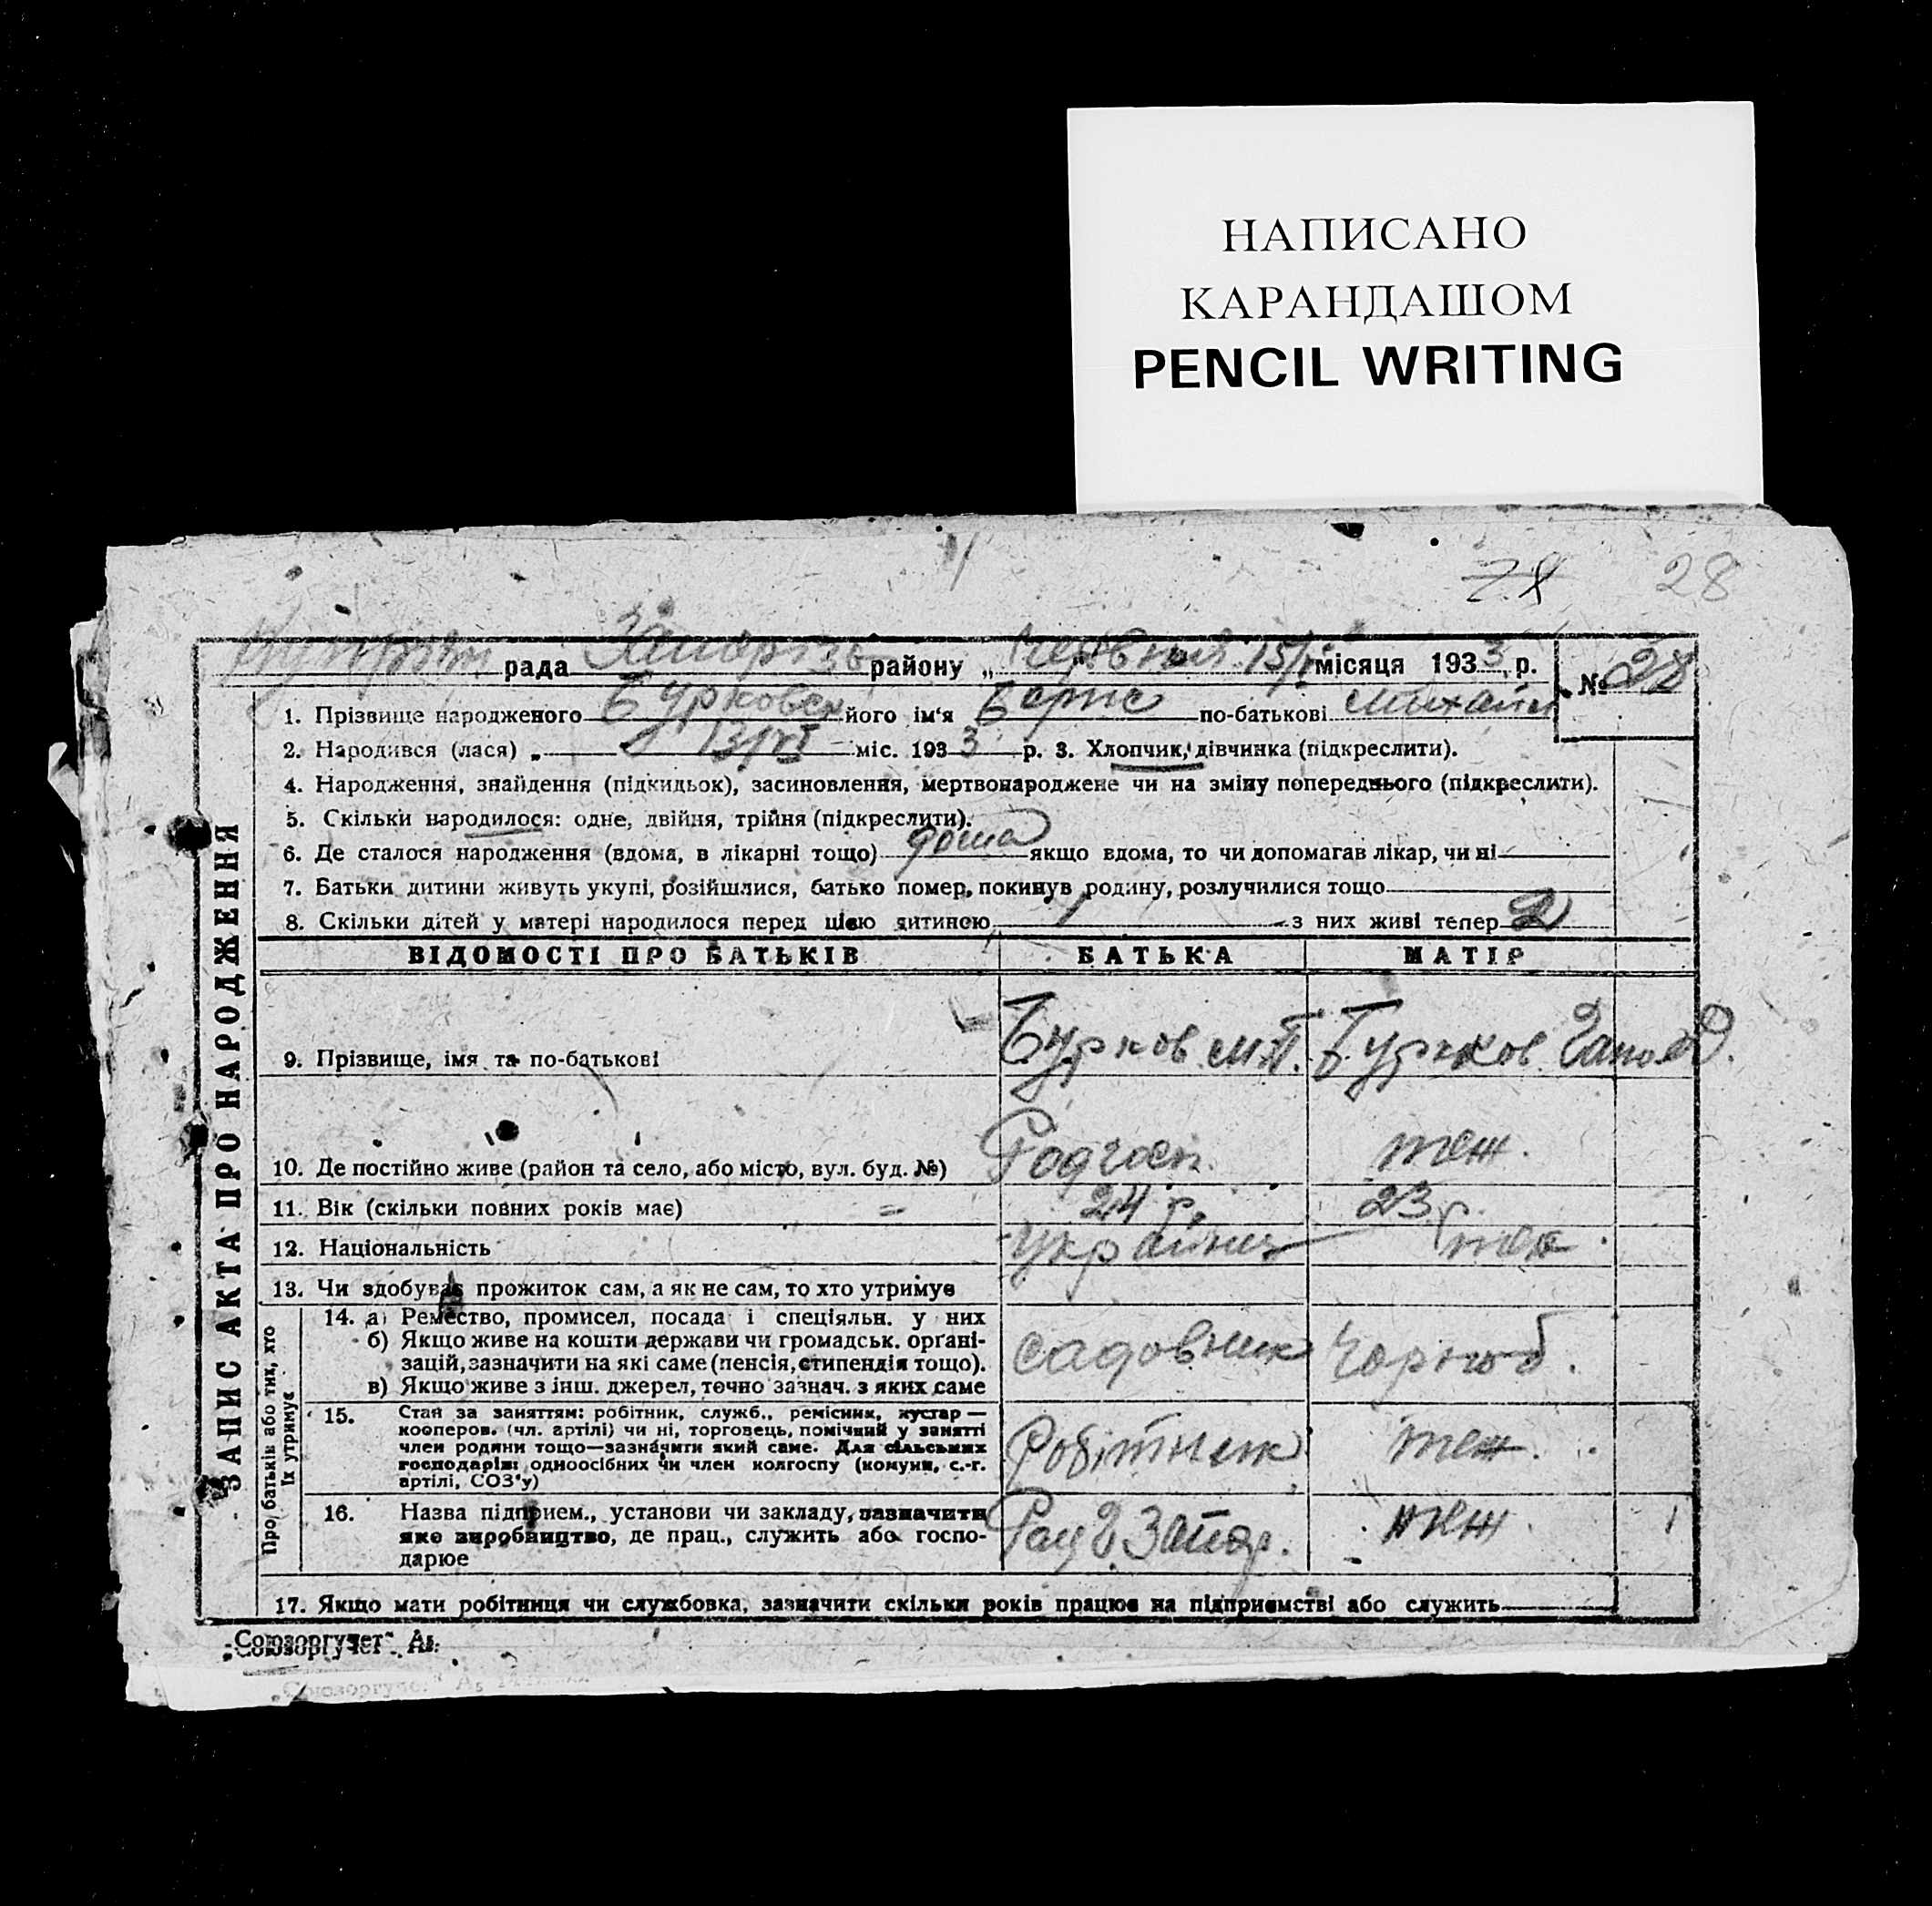 НАПИСАНО
КАРАНДАШОМ
PENCIL WRITING
28
рада Запорізь району „ червня 15/VI місяця 1933 р.
№ 28
1. Прізвище народженого Бурковск його ім‘я Борис по-батькові Михайл
2. Народився (лася) „ 13/VI міс. 1933 р. 3. Хлопчик, дівчинка (підкреслити).
4. Народження, знайдення (підкидьок), засиновлення, мертвонароджене чи на зміну попереднього (підкреслити).
5. Скільки народилося: одне, двійня, трійня (підкреслити).
6. Де сталося народження (вдома, в лікарні тощо) дома якщо вдома, то чи допомагав лікар, чи ні
7. Батьки дитини живуть укупі, розійшлися, батько помер, покинув родину, розлучилися тощо
8. Скільки дітей у матері народилося перед цією дитиною 1 з них живі тепер 2
ЗАПИС АКТА ПРО НАРОДЖЕННЯ
ВІДОМОСТІ ПРО БАТЬКІВ БАТЬКА МАТІР
9. Прізвище, імя та по-батькові Бурков М.П. Бурков
10. Де постійно живе (район та село, або місто, вул. буд. №) Радгосп. теж.
11. Вік (скільки повних років має) 24 р. 23 р.
12. Національність Україниц теж.
13. Чи здобуває прожиток сам, а як не сам, то хто утримує
Про батьків або тих, хто
їх утримує
14. а) Ремество, промисел, посада і спеціяльн. у них
б) Якщо живе на кошти держави чи громадськ. орґані-
зацій, зазначити на які саме (пенсія, стипендія тощо).
в) Якщо живе з інш. джерел, точно зазнач. з яких саме
садовник Чорноб.
15. Стан за заняттям: робітник, служб., ремісник, кустар—
кооперов. (чл. артілі) чи ні, торговець, помічний у занятті
член родини тощо—зазначити який саме. Для сільських
господарів: одноосібних чи член колгоспу (комуни, с.-г.
артілі, СОЗ'у)
Робітник теж.
16. Назва підприєм., установи чи закладу, зазначити
яке виробництво, де прац., служить або госпо-
дарює
Запор. теж
17. Якщо мати робітниця чи службовка, зазначити скільки років працює на підприємстві або служить
„Союзоргучет“. А5